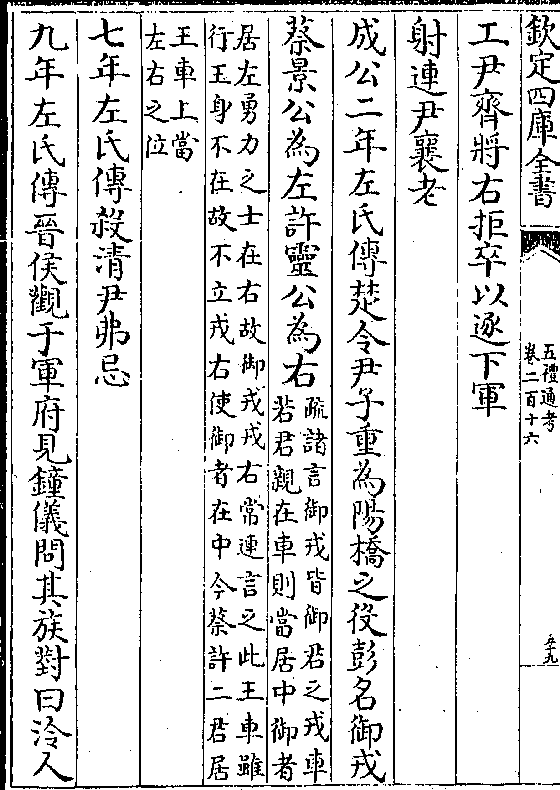 欽定四庫全書
五禮通考
卷二百十六
五十九
工尹齊將右拒卒以逐下軍
射連尹襄老
成公二年左氏傳楚令尹子重為陽橋之役彭名御戎
蔡景公為左許靈公為右
疏諸言御戎皆御君之戎車
若君親在車則當居中御者
居左勇力之士在右故御戎戎右常連言之此王車雖
行王身不在故不立戎右使御者在中今蔡許二君居
王車上當
左右之位
七年左氏傳殺清尹弗忌
九年左氏傳晉侯觀于軍府見鐘儀問其族對曰泠人